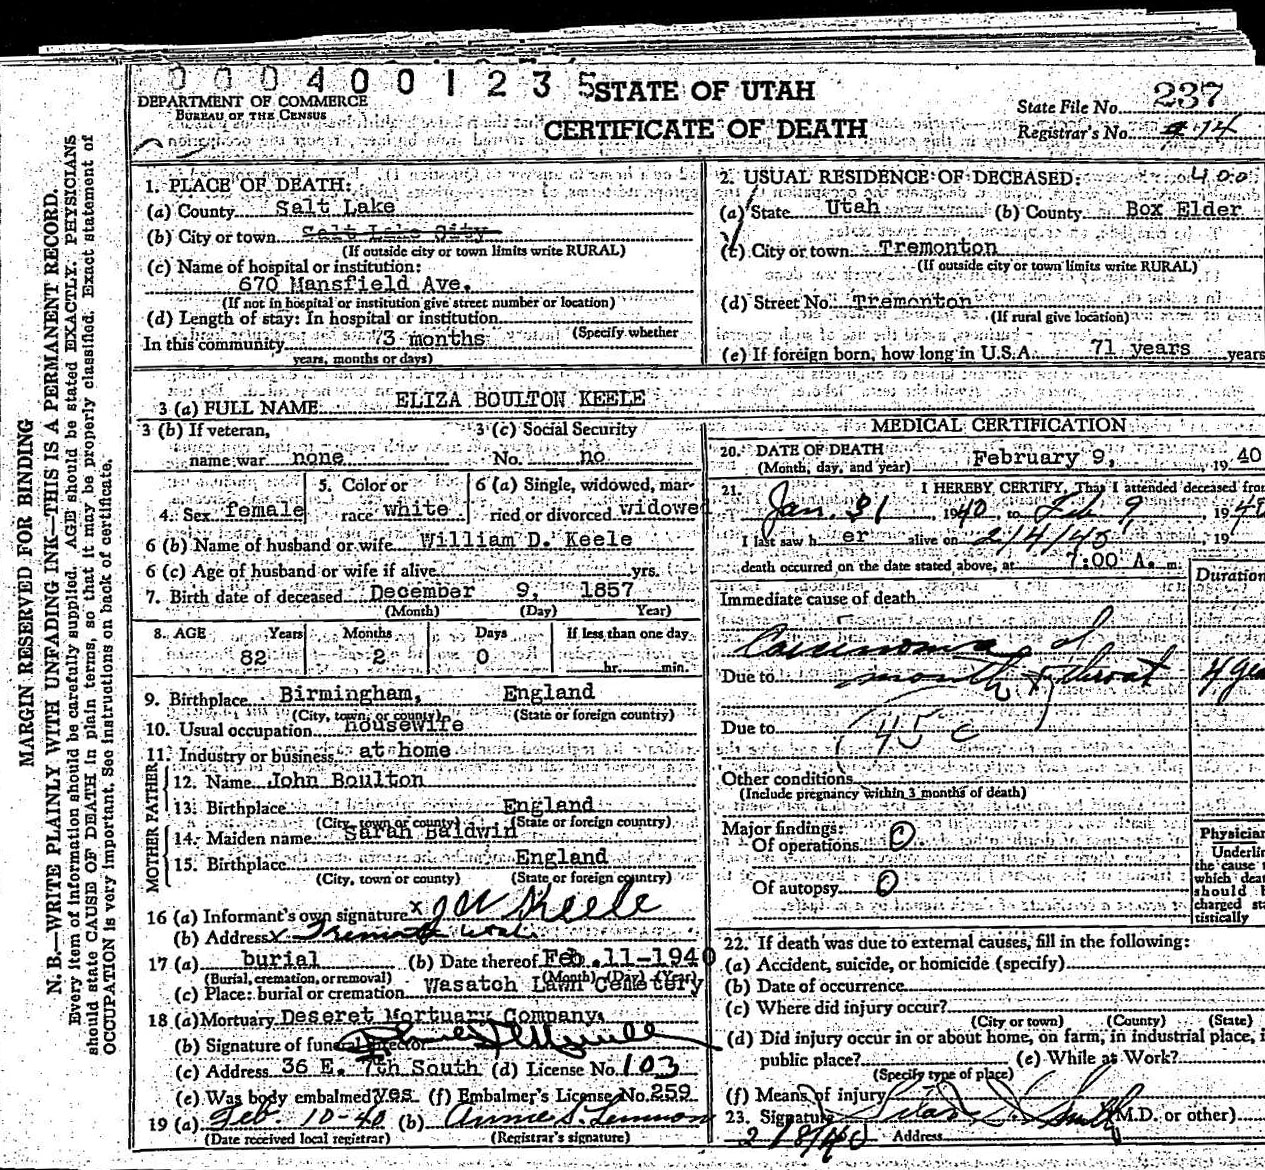 0004001235
STATE OF UTAH
CERTIFICATE OF DEATH
DEPARTMENT OF COMMERCE
BUREAU OF THE CENSUS
State File No. 237
Registrar's No.
MARGIN RESERVED FOR BINDING
N. B.—WRITE PLAINLY WITH UNFADING INK—THIS IS A PERMANENT RECORD.
Every item of information should be carefully supplied. AGE should be stated EXACTLY. PHYSICIANS
should state CAUSE OF DEATH in plain terms, so that it may be properly classified. Exact statement of
OCCUPATION is very important. See instructions on back of certificate.
1. PLACE OF DEATH:
(a) County Salt Lake
(b) City or town Salt Lake City
(If outside city or town limits write RURAL)
(c) Name of hospital or institution:
670 Mansfield Ave.
(If not in hospital or institution give street number or location)
(d) Length of stay: In hospital or institution
(Specify whether
In this community 73 months
years, months or days)
2. USUAL RESIDENCE OF DECEASED: 400
(a) State Utah (b) County Box Elder
(c) City or town Tremonton
(If outside city or town limits write RURAL)
(d) Street No. Tremonton
(If rural give location)
(e) If foreign born, how long in U.S.A. 71 years years
3 (a) FULL NAME ELIZA BOULTON KEELE
3 (b) If veteran, name war none
3 (c) Social Security No. no
4. Sex female
5. Color or race white
6 (a) Single, widowed, married or divorced widowed
6 (b) Name of husband or wife William D. Keele
6 (c) Age of husband or wife if alive yrs.
7. Birth date of deceased December 9, 1857
(Month) (Day) Year)
8. AGE Years Months Days If less than one day
82 2 0 hr. min.
9. Birthplace Birmingham, England
(City, town, or county) (State or foreign country)
10. Usual occupation housewife
11. Industry or business at home
FATHER
12. Name John Boulton
13. Birthplace England
(City, town or county) (State or foreign country)
MOTHER
14. Maiden name Sarah Baldwin
15. Birthplace England
(City, town or county) (State or foreign country)
16 (a) Informant's own signature x J W Keele
(b) Address x
17 (a) burial (b) Date thereof Feb. 11-1940
(Burial, cremation, or removal) (Month) (Day) (Year)
(c) Place: burial or cremation Wasatch Lawn Cemetery
18 (a) Mortuary Deseret Mortuary Company
(b) Signature of funeral director
(c) Address 36 E. 7th South (d) License No. 103
(e) Was body embalmed yes (f) Embalmer's License No. 259
19 (a) Feb. 10-40 (b) Annie S. Lennon
(Date received local registrar) (Registrar's signature)
MEDICAL CERTIFICATION
20. DATE OF DEATH
(Month, day, and year) February 9, 19 40
21. I HEREBY CERTIFY, That I attended deceased from
Jan. 31 1940 to Feb 9, 1940
I last saw h er alive on 2/4/40, 19
death occurred on the date stated above, at 7:00 A. m.
Duration
Immediate cause of death
Carcinoma of
Due to mouth & throat 4
Due to 45 c
Other conditions
(Include pregnancy within 3 months of death)
Major findings:
Of operations 0
Of autopsy 0
Physician
Underli
the cause
which deat
should b
charged sta
tistically
22. If death was due to external causes, fill in the following:
(a) Accident, suicide, or homicide (specify)
(b) Date of occurrence
(c) Where did injury occur?
(City or town) (County) (State)
(d) Did injury occur in or about home, on farm, in industrial place, i
public place? (e) While at Work?
(Specify type of place)
(f) Means of injury
23. Signature Silas S. Smith (M.D. or other)
Address